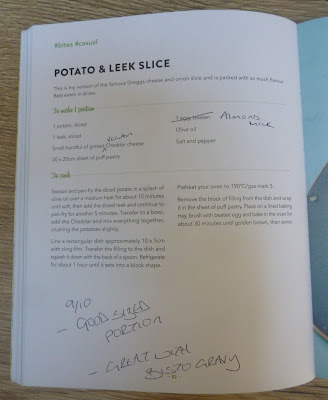 #bites #casual
POTATO & LEEK SLICE
This is my version of the famous Greggs cheese and onion slice and is packed with so much flavour.
Best eaten in slices.
To make 1 portion
1 potato, diced
1 leek, sliced
VEGAN
Small handful of grated Cheddar cheese
20 x 20cm sheet of puff pastry
1 egg, beaten ALMOND
MILK
Olive oil
Salt and pepper
To cook
Season and pan-fry the diced potato in a splash of
olive oil over a medium heat for about 10 minutes
until soft, then add the sliced leek and continue to
pan-fry for another 5 minutes. Transfer to a bowl,
add the Cheddar and mix everything together,
crushing the potatoes slightly.
Line a rectangular dish approximately 10 x 5cm
with cling film. Transfer the filling to the dish and
squash it down with the back of a spoon. Refrigerate
for about 1 hour until it sets into a block shape.
Preheat your oven to 190°C/gas mark 5.
Remove the block of filling from the dish and wrap
it in the sheet of puff pastry. Place on a lined baking
tray, brush with beaten egg and bake in the oven for
about 30 minutes until golden brown, then serve.
9/10
- GOOD SIZED
PORTION
- GREAT WITH
BISTO GRAVY